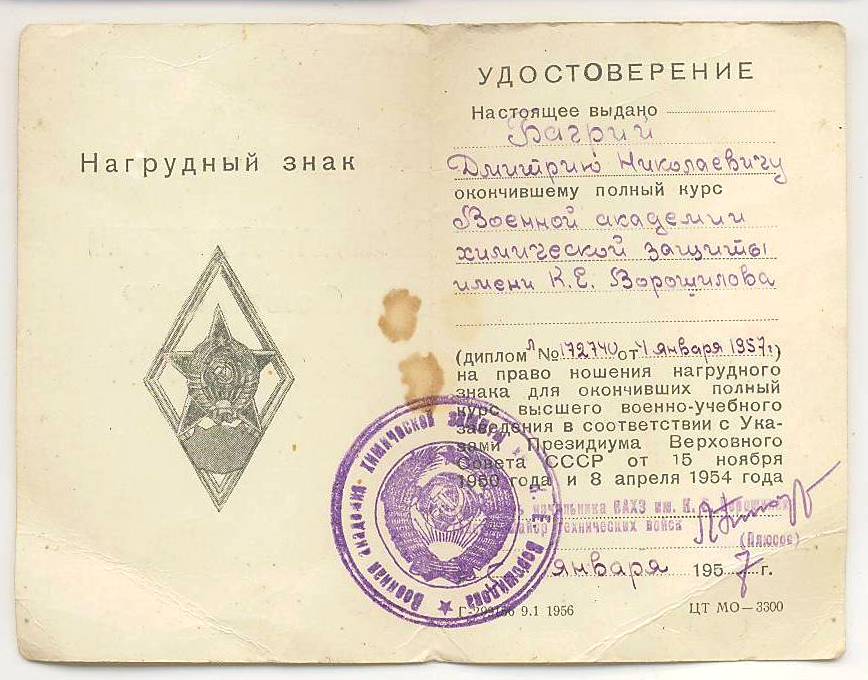 Нагрудный знак
УДОСТОВЕРЕНИЕ
Настоящее выдано
Багрий
Дмитрию Николаевичу
окончившему полный курс
Военной академии
химической защиты
имени К.Е. Ворошилова
(диплом Л № 172740 от 4 января 1957г)
на право ношения нагрудного
знака для окончивших полный
курс высшего военно-учебного
заведения в соответствии с Ука-
зами Президиума Верховного
Совета СССР от 15 ноября
1950 года и 8 апреля 1954 года
начальника ВАХЗ им. К. Е. Ворошилова
технических войск
января 1957 г.
Г-299166 9.1 1956
ЦТ МО—3300
Военная академия химической защиты К. Е. Ворошилова